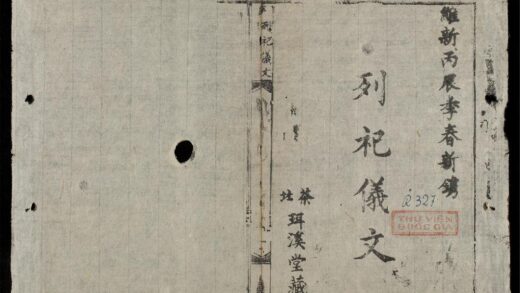 維新丙辰季春新鐫
列祀儀文
R 327
THƯ VIỆN
QUỐC GIA
茶
社
珥溪堂藏
列祀儀文